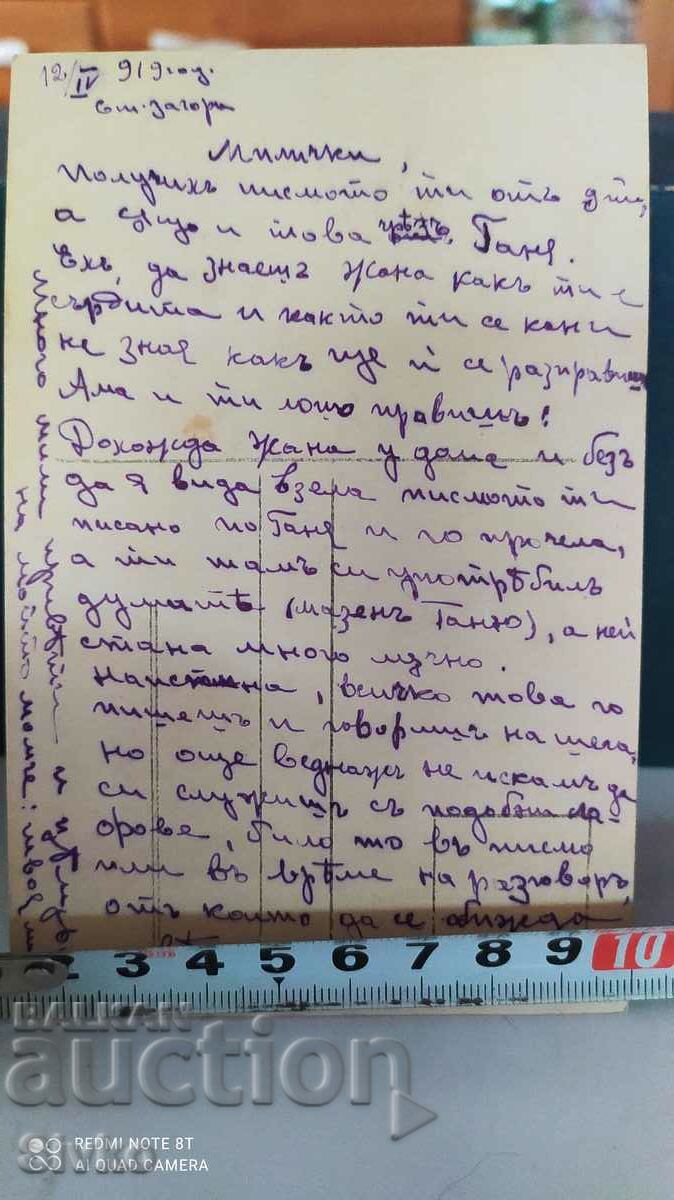 12/IV 919 год.
Ст. Загора
Милички,
Получихъ писмото ти отъ
а също и това чрѣзъ Ганя.
Ехъ, да знаешъ Жана какъ ти е
сърдита и както ти се кани
не зная какъ ще ѝ се разправишъ
Ама и ти лошо правишъ!
Дохожда Жана у дома и безъ
да я видя взела писмото ти
писано по Ганя и го прочела,
а ти тамъ си употрѣбилъ
думатѣ (мазенъ Ганю), а ней
стана много мъчно.
Наистина, всичко това го
пишешъ и говоришъ на шега,
но още веднажъ не искамъ да
си служишъ съ подобни сло-
рове, било то въ писмо
или въ врѣме на разговоръ,
отъ които да се обижда
много мили привѣти и
на моето момче: твоя
2 3 4 5 6 7 8 9 10
BALKAN
auction
REDMI NOTE 8T
AI QUAD CAMERA